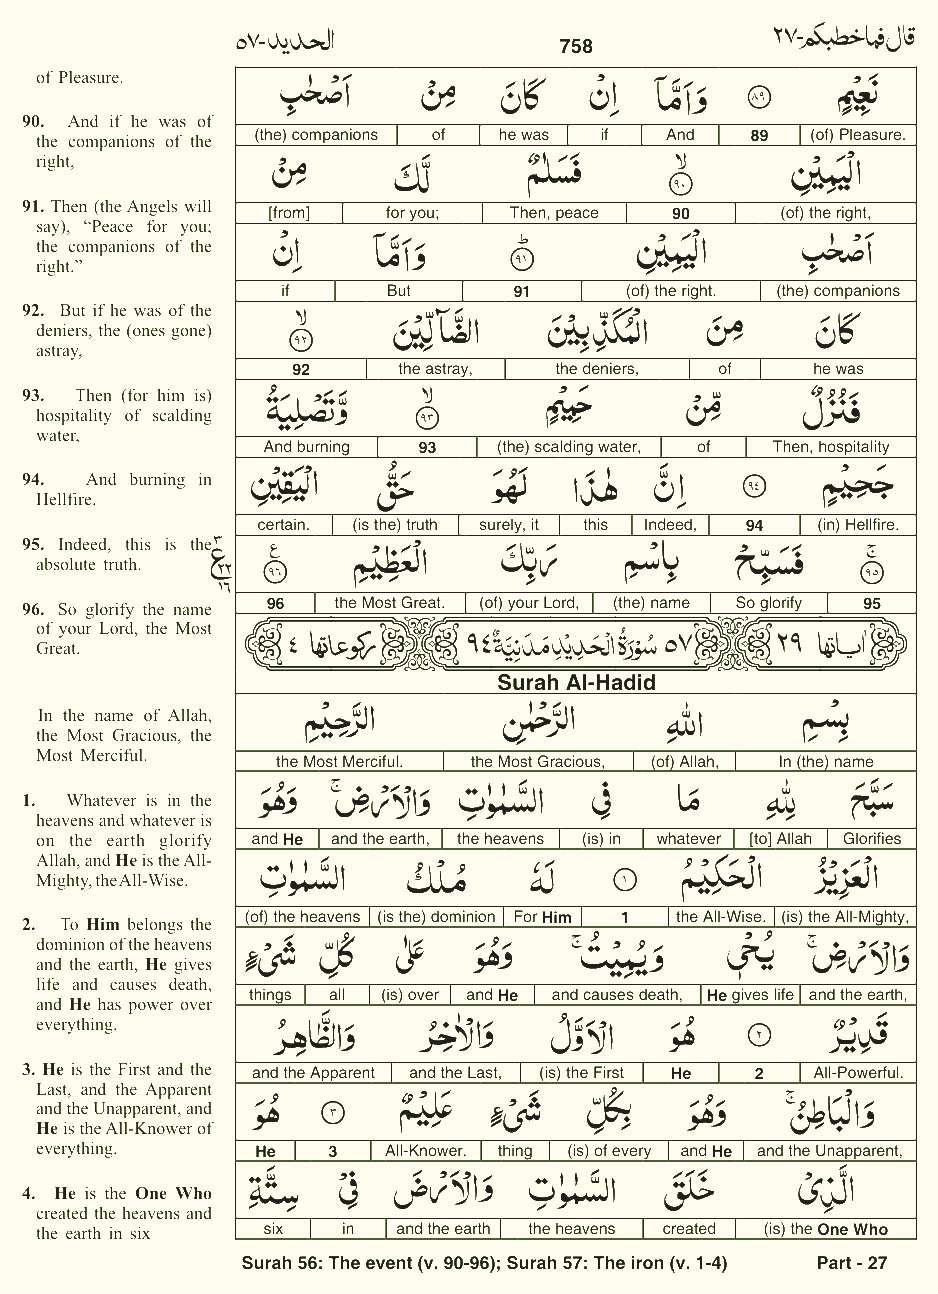 الحديد-٥٧
758
قال فما خطبكم-٢٧
of Pleasure.
90. And if he was of
the companions of the
right,
91. Then (the Angels will
say), “Peace for you;
the companions of the
right.”
92. But if he was of the
deniers, the (ones gone)
astray,
93. Then (for him is)
hospitality of scalding
water,
94. And burning in
Hellfire.
95. Indeed, this is the
absolute truth.
96. So glorify the name
of your Lord, the Most
Great.
In the name of Allah,
the Most Gracious, the
Most Merciful.
1. Whatever is in the
heavens and whatever is
on the earth glorify
Allah, and He is the All-
Mighty, the All-Wise.
2. To Him belongs the
dominion of the heavens
and the earth, He gives
life and causes death,
and He has power over
everything.
3. He is the First and the
Last, and the Apparent
and the Unapparent, and
He is the All-Knower of
everything.
4. He is the One Who
created the heavens and
the earth in six
نَعِيْمٍ ﴿٨٩﴾ وَاَمَّآ اِنْ كَانَ مِنْ اَصْحٰبِ
(of) Pleasure. 89 And if he was of (the) companions
الْيَمِيْنِ ﴿٩٠﴾ۙ فَسَلٰمٌ لَّكَ مِنْ
(of) the right, 90 Then, peace for you; [from]
اَصْحٰبِ الْيَمِيْنِ ﴿٩١﴾ؕ وَاَمَّآ اِنْ
(the) companions (of) the right. 91 But if
كَانَ مِنَ الْمُكَذِّبِيْنَ الضَّآلِّيْنَ ﴿٩٢﴾ۙ
he was of the deniers, the astray, 92
فَنُزُلٌ مِّنْ حَمِيْمٍ ﴿٩٣﴾ۙ وَّتَصْلِيَةُ
Then, hospitality of (the) scalding water, 93 And burning
جَحِيْمٍ ﴿٩٤﴾ اِنَّ هٰذَا لَهُوَ حَقُّ الْيَقِيْنِ
(in) Hellfire. 94 Indeed, this surely, it (is the) truth certain.
﴿٩٥﴾ۚ فَسَبِّحْ بِاسْمِ رَبِّكَ الْعَظِيْمِ ﴿٩٦﴾ ع
95 So glorify (the) name (of) your Lord, the Most Great. 96
٣
ع ٢٢
١٦
اٰیاتها ٢٩ ٥٧ سُوْرَةُ الْحَدِيْدِ مَدَنِيَّةٌ ٩٤ رکوعاتها ٤
Surah Al-Hadid
بِسْمِ اللّٰهِ الرَّحْمٰنِ الرَّحِيْمِ
In (the) name (of) Allah, the Most Gracious, the Most Merciful.
سَبَّحَ لِلّٰهِ مَا فِي السَّمٰوٰتِ وَالْاَرْضِ ۚ وَهُوَ
Glorifies [to] Allah whatever (is) in the heavens and the earth, and He
الْعَزِيْزُ الْحَكِيْمُ ﴿١﴾ لَهٗ مُلْكُ السَّمٰوٰتِ
(is) the All-Mighty, the All-Wise. 1 For Him (is the) dominion (of) the heavens
وَالْاَرْضِ ۚ يُحْيٖ وَيُمِيْتُ ۚ وَهُوَ عَلٰى كُلِّ شَيْءٍ
and the earth, He gives life and causes death, and He (is) over all things
قَدِيْرٌ ﴿٢﴾ هُوَ الْاَوَّلُ وَالْاٰخِرُ وَالظَّاهِرُ
All-Powerful. 2 He (is) the First and the Last, and the Apparent
وَالْبَاطِنُ ۚ وَهُوَ بِكُلِّ شَيْءٍ عَلِيْمٌ ﴿٣﴾ هُوَ
and the Unapparent, and He (is) of every thing All-Knower. 3 He
الَّذِيْ خَلَقَ السَّمٰوٰتِ وَالْاَرْضَ فِيْ سِتَّةِ
(is) the One Who created the heavens and the earth in six
Surah 56: The event (v. 90-96); Surah 57: The iron (v. 1-4)
Part - 27